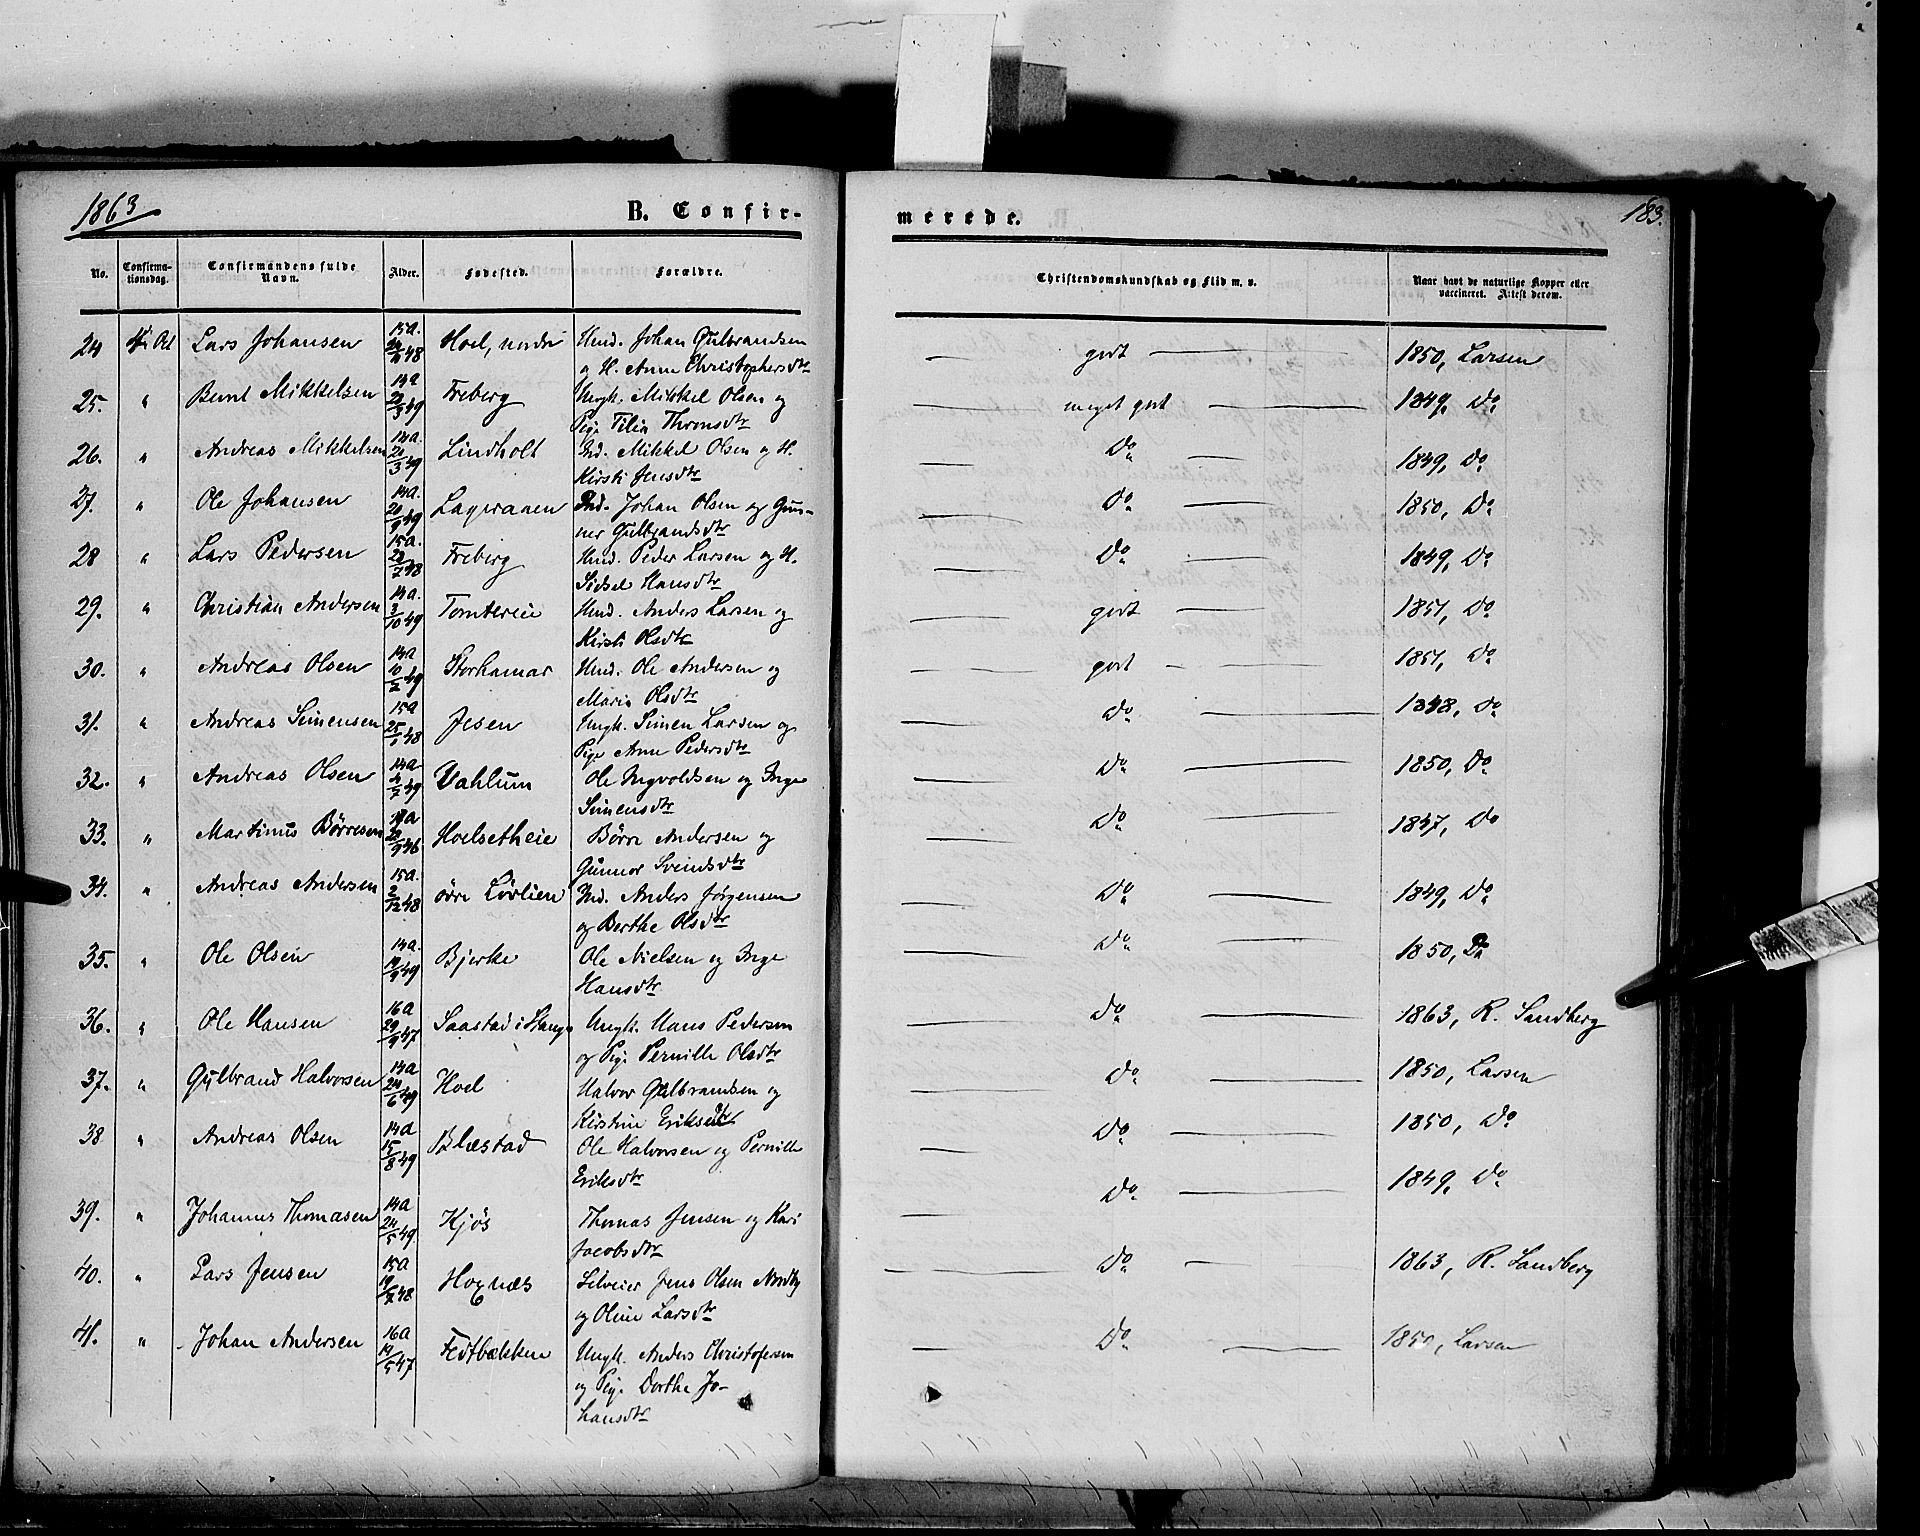 1863
B. Confir-
merede.
183.
No.
Confirma-
tionsdag.
Confirmandens fulde
Navn.
Alder.
Fødested.
Forældre.
Christendomskundskab og Flid m. v.
Naar havt de naturlige Kopper eller
vaccineret. Attest derom.
24 Oct Lars Johansen 15a. 48 Hoel, nedre Huusmd. Johan Gulbrandsen
og H. Anne Christophersdtr godt 1850, Larsen
25. " Bernt Mikkelsen 14a 29/3 49 Freberg Ungk. Mikkel Olsen og
Pige Thronsdtr meget godt 1849, Do
26. " Andreas Mikkelsen 14a. 21/3 49 Lindholt Ind. Mikkel Olsen og H.
Kirsti Jensdtr Do 1849, Do
27. " Ole Johansen 14a. 20/9 49 Lageraaen Ind. Johan Olsen og Gun-
ner Gulbrandsdtr Do 1850, Do
28 " Lars Pedersen 15a. 28/7 48 Freberg Huusmd. Peder Larsen og H.
Sidsel Hansdtr Do 1849, Do
29. " Christian Andersen 14a. 3/10 49 Tomtereie Huusmd. Anders Larsen og
Kirsti Olsdtr godt 1851, Do
30. " Andreas Olsen 14a 10/2 49 Storhamar Huusmd. Ole Andersen og
Maria Olsdtr godt 1851, Do
31. " Andreas Simensen 15a 25/1 48 Jesen Ungk. Simen Larsen og
Pige Anne Pedersdtr Do 1848, Do
32. " Andreas Olsen 14a 4/7 49 Vahlum Ole Ingvoldsen og Inge
Simensdtr Do 1850, Do
33. " Martinus Børresen 46 Hoelsetheie Børre Andersen og
Gunnor Svendsdtr Do 1847, Do
34. " Andreas Andersen 15a. 2/12 48 øvre Løvlien Ind. Anders Jørgensen
og Berthe Olsdtr Do 1849, Do
35. " Ole Olsen 14a. 19/9 49 Bjerke Ole Nielsen og Inge
Hansdtr Do 1850, Do
36. " Ole Hansen 16a 29/9 47 Saastad i Stange Ungk. Hans Pedersen
og Pige Pernille Olsdtr Do 1863, R. Sandberg
37. " Gulbrand Halvorsen 14a 24/6 49 Hoel Halvor Gulbrandsen og
Kirstine Eriksdtr Do 1850, Larsen
38 " Andreas Olsen 14a 15/8 49 Blæstad Ole Halvorsen og Pernille
Eriksdtr Do 1850, Do
39. " Johannes Thomasen 14a 24/5 49. Kjøs Thomas Jensen og Kari
Jacobsdtr Do 1849, Do
40. " Lars Jensen 15a 19/7 48 Hognæs Selveier Jens Olsen Nordby
og Oline Larsdtr Do 1863, R. Sandberg
41. " Johan Andersen 16a 19/5 47 Fedtbækken Ungk. Anders Christofersen
og Pige Dorthe Jo-
hansdtr Do 1850, Larsen